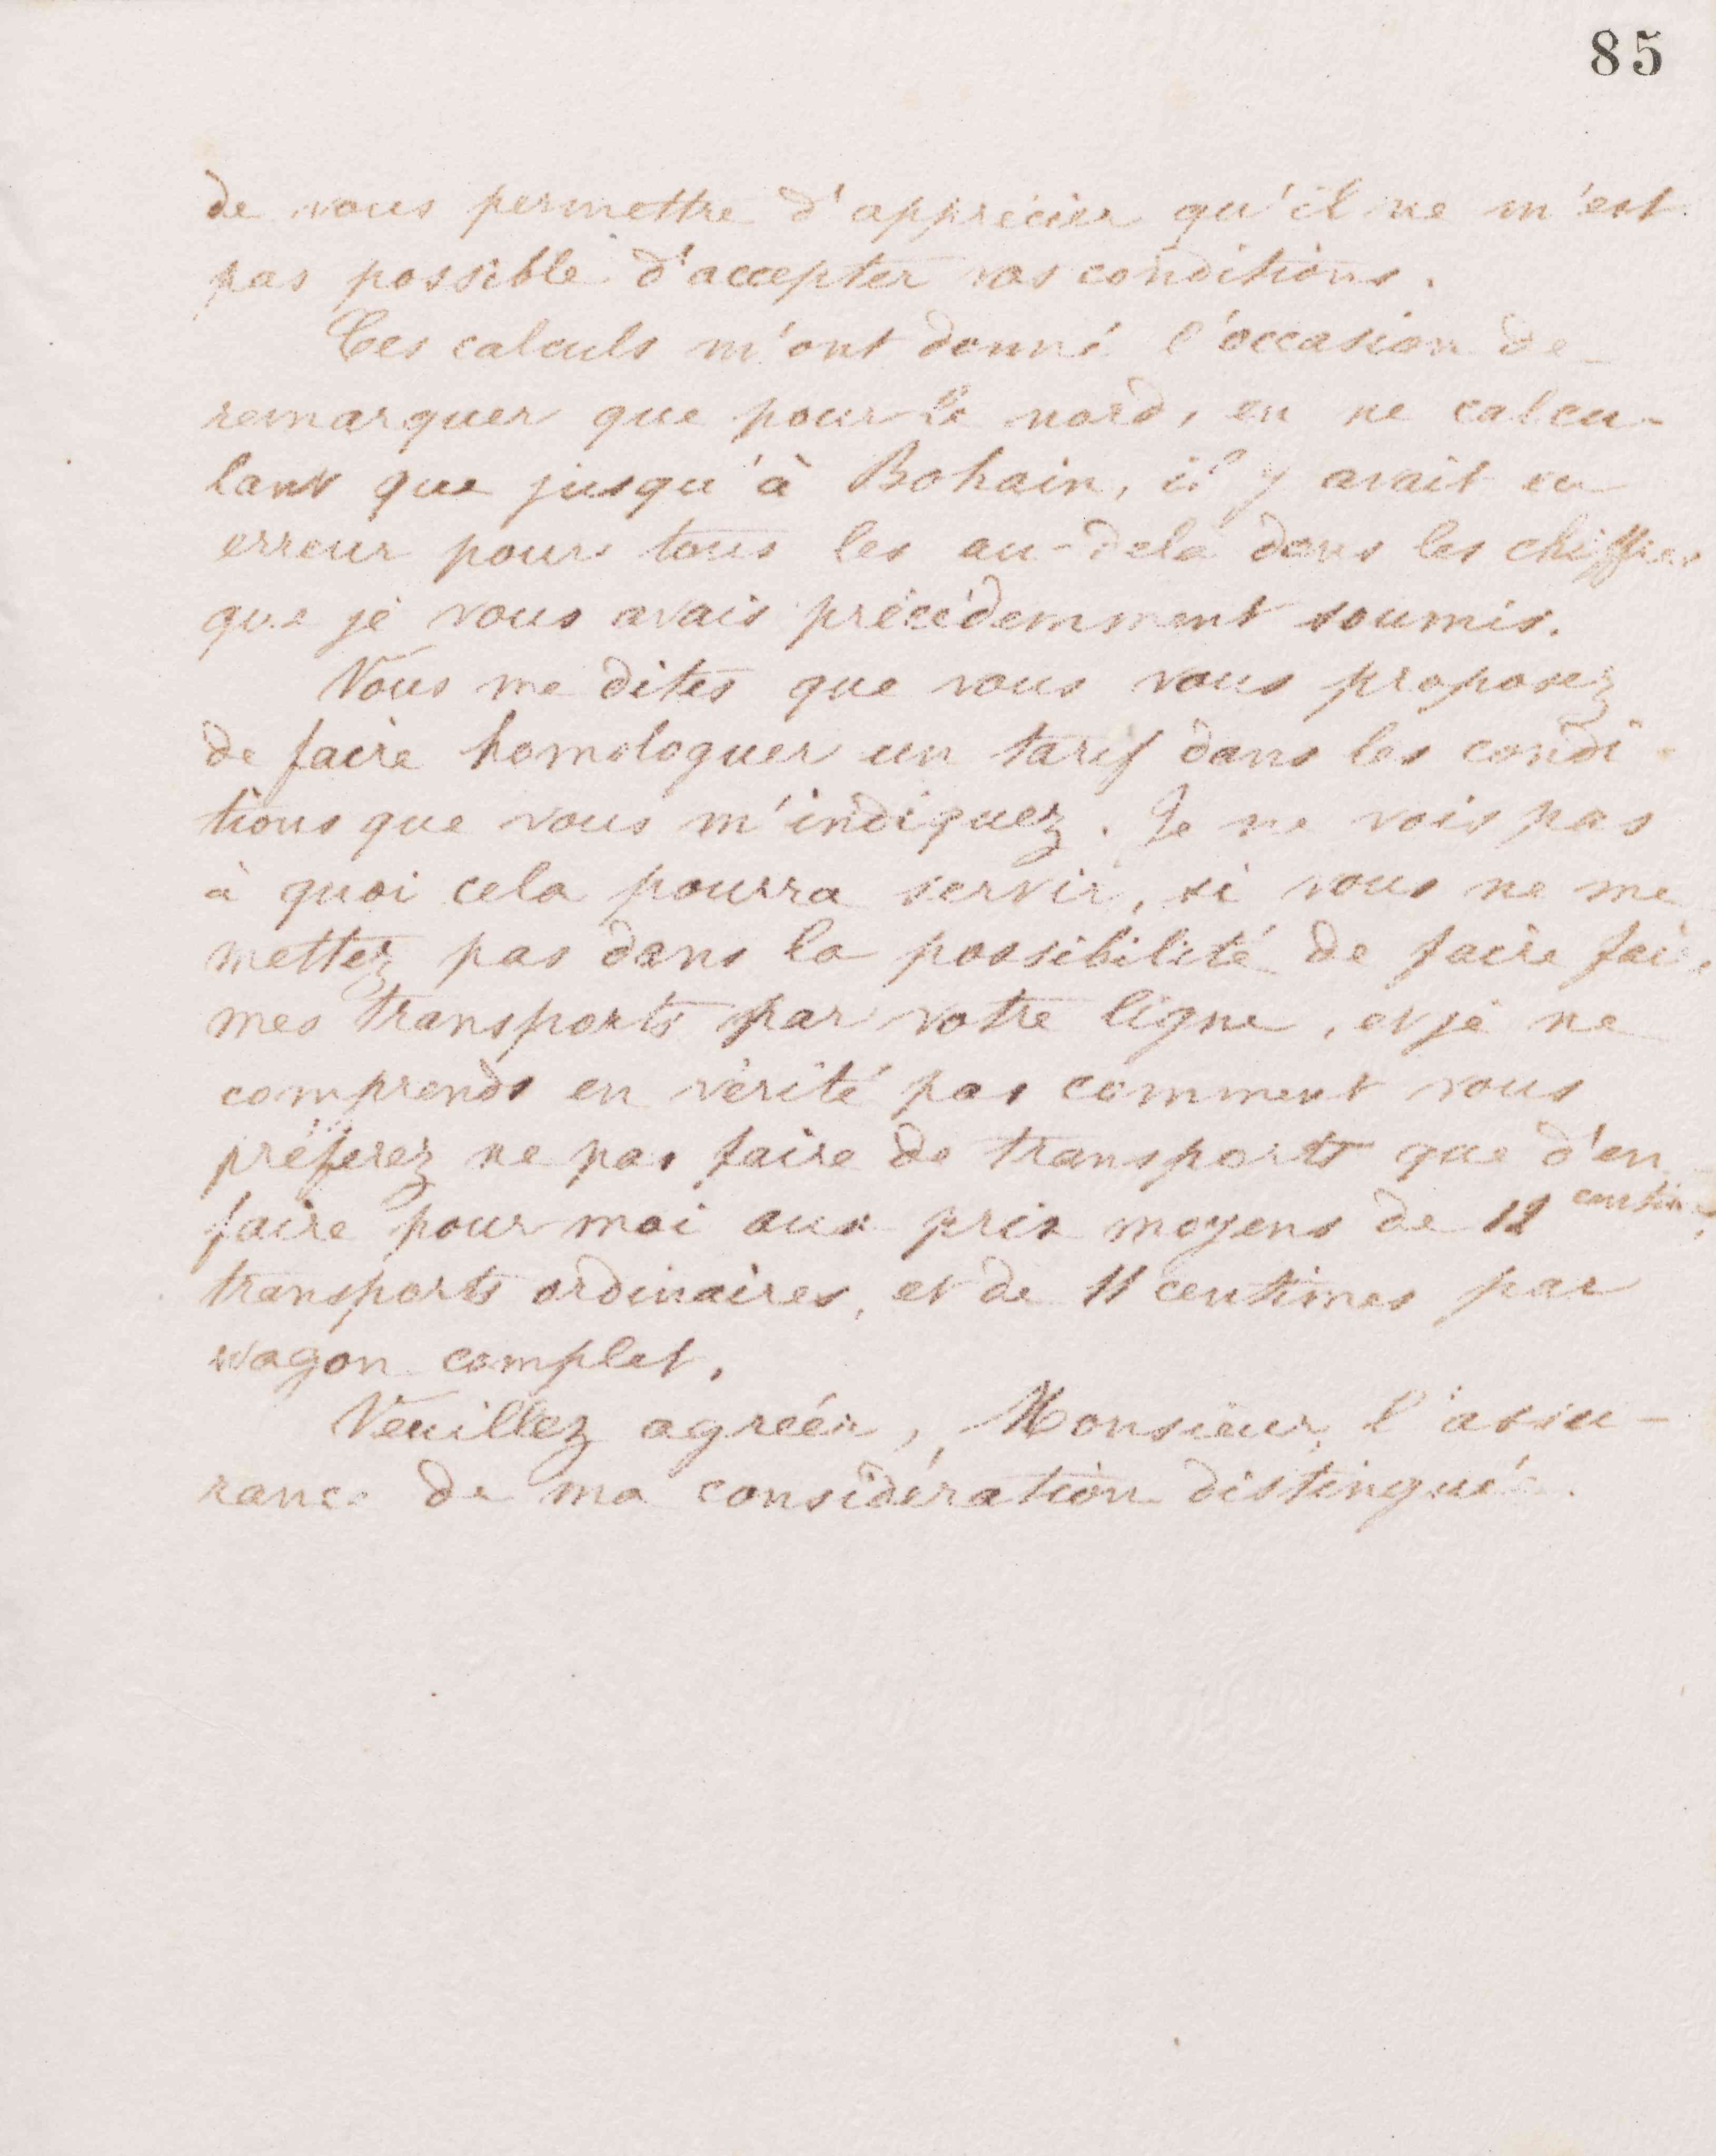 85
de vous permettre d'apprécier qu'il ne m'est
pas possible d'accepter vos conditions.
Ces calculs m'ont donné l'occasion de
remarquer que pour le nord, en ne calcu-
lant que jusqu'à Bohain, il y avait eu
erreur pour tous les au-delà dans les chiffres
que je vous avais précédemment soumis.
Vous me dites que vous vous proposez
de faire homologuer un tarif dans les condi-
tions que vous m'indiquez. Je ne vois pas
à quoi cela pourra servir, si vous ne me
mettez pas dans la possibilité de faire fai
mes transports par votre ligne, et je ne
comprends en vérité pas comment vous
préferez ne pas faire de transports que d'en
faire pour moi aux prix moyens de 12 centimes
transports ordinaires, et de 11 centimes par
wagon complet.
Veuillez agréer, Monsieur, l'assu-
rance de ma considération distinguée.